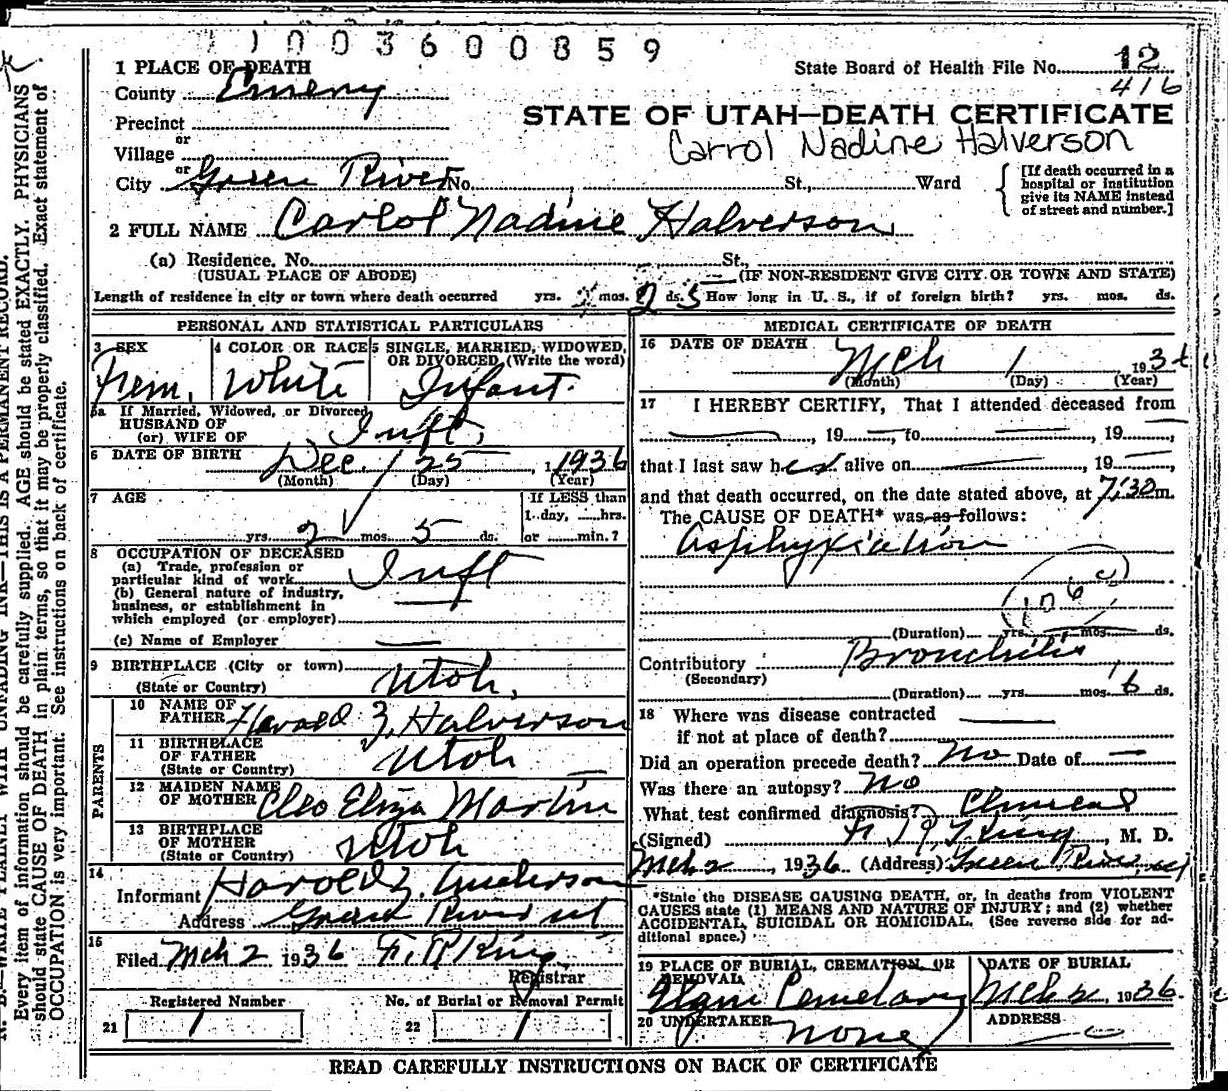 1003600859
1 PLACE OF DEATH
State Board of Health File No. 12
County Emery
416
STATE OF UTAH—DEATH CERTIFICATE
Precinct
or
Carrol Nadine Halverson
Village
or
City Green River No. St., Ward
[If death occurred in a hospital or institution give its NAME instead of street and number.]
2 FULL NAME Carlol Nadine Halverson
(a) Residence, No. St.,
(USUAL PLACE OF ABODE) (IF NON-RESIDENT GIVE CITY OR TOWN AND STATE)
Length of residence in city or town where death occurred yrs. mos. 2 ds. 5 How long in U. S., if of foreign birth? yrs. mos. ds.
PERSONAL AND STATISTICAL PARTICULARS
3 SEX
Fem.
4 COLOR OR RACE
White
5 SINGLE, MARRIED, WIDOWED,
OR DIVORCED (Write the word)
Infant.
5a If Married, Widowed, or Divorced
HUSBAND OF
(or) WIFE OF Inft,
6 DATE OF BIRTH Dec. 25, 1936
(Month) (Day) (Year)
7 AGE
If LESS than
1 day, hrs.
yrs. 2 mos. 5 ds. or min.?
8 OCCUPATION OF DECEASED
(a) Trade, profession or
particular kind of work Inft
(b) General nature of industry,
business, or establishment in
which employed (or employer)
(c) Name of Employer
9 BIRTHPLACE (City or town)
(State or Country) Utah,
PARENTS
10 NAME OF
FATHER Harold Z. Halverson
11 BIRTHPLACE
OF FATHER
(State or Country) Utah
12 MAIDEN NAME
OF MOTHER Cleo Eliza Martin
13 BIRTHPLACE
OF MOTHER
(State or Country) Utah
14
Informant Harold Z. Anderson
Address Green River ut
15
Filed Mch 2 1936 F. R. King
Registrar
Registered Number
21 1
No. of Burial or Removal Permit
22 1
MEDICAL CERTIFICATE OF DEATH
16 DATE OF DEATH Mch 1 193
(Month) (Day) (Year)
17 I HEREBY CERTIFY, That I attended deceased from
, 19 , to , 19 ,
that I last saw her alive on , 19
and that death occurred, on the date stated above, at 7:30 m.
The CAUSE OF DEATH* was as follows:
Asphyxiation
106
(Duration) yrs. mos. ds.
Contributory Bronchitis
(Secondary)
(Duration) yrs. mos. 6 ds.
18 Where was disease contracted
if not at place of death?
Did an operation precede death? No Date of
Was there an autopsy? No
What test confirmed diagnosis? Clinical
(Signed) F. R. King, M. D.
Mch 2, 1936 (Address) Green River, ut
*State the DISEASE CAUSING DEATH, or, in deaths from VIOLENT
CAUSES state (1) MEANS AND NATURE OF INJURY; and (2) whether
ACCIDENTAL, SUICIDAL OR HOMICIDAL. (See reverse side for ad-
ditional space.)
19 PLACE OF BURIAL, CREMATION, OR
REMOVAL
Elgin Cemetary
DATE OF BURIAL
Mch 2, 1936.
20 UNDERTAKER
none
ADDRESS
READ CAREFULLY INSTRUCTIONS ON BACK OF CERTIFICATE
N. B.—WRITE PLAINLY WITH UNFADING INK—THIS IS A PERMANENT RECORD.
Every item of information should be carefully supplied. AGE should be stated EXACTLY. PHYSICIANS
should state CAUSE OF DEATH in plain terms, so that it may be properly classified. Exact statement of
OCCUPATION is very important. See instructions on back of certificate.